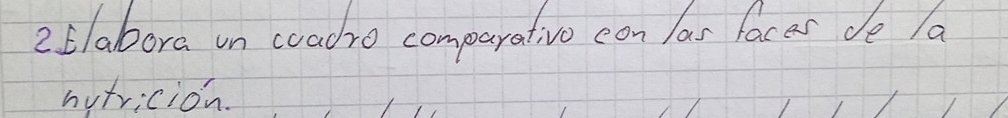 2. Elabora un cuadro comparativo con las faces de la
nutrición.